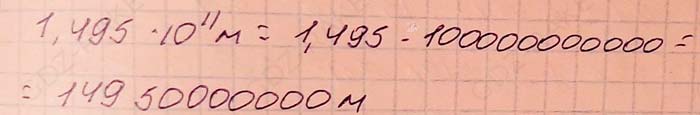 1,495 · 10¹¹ м = 1,495 · 100000000000 =
= 149 500000000 м